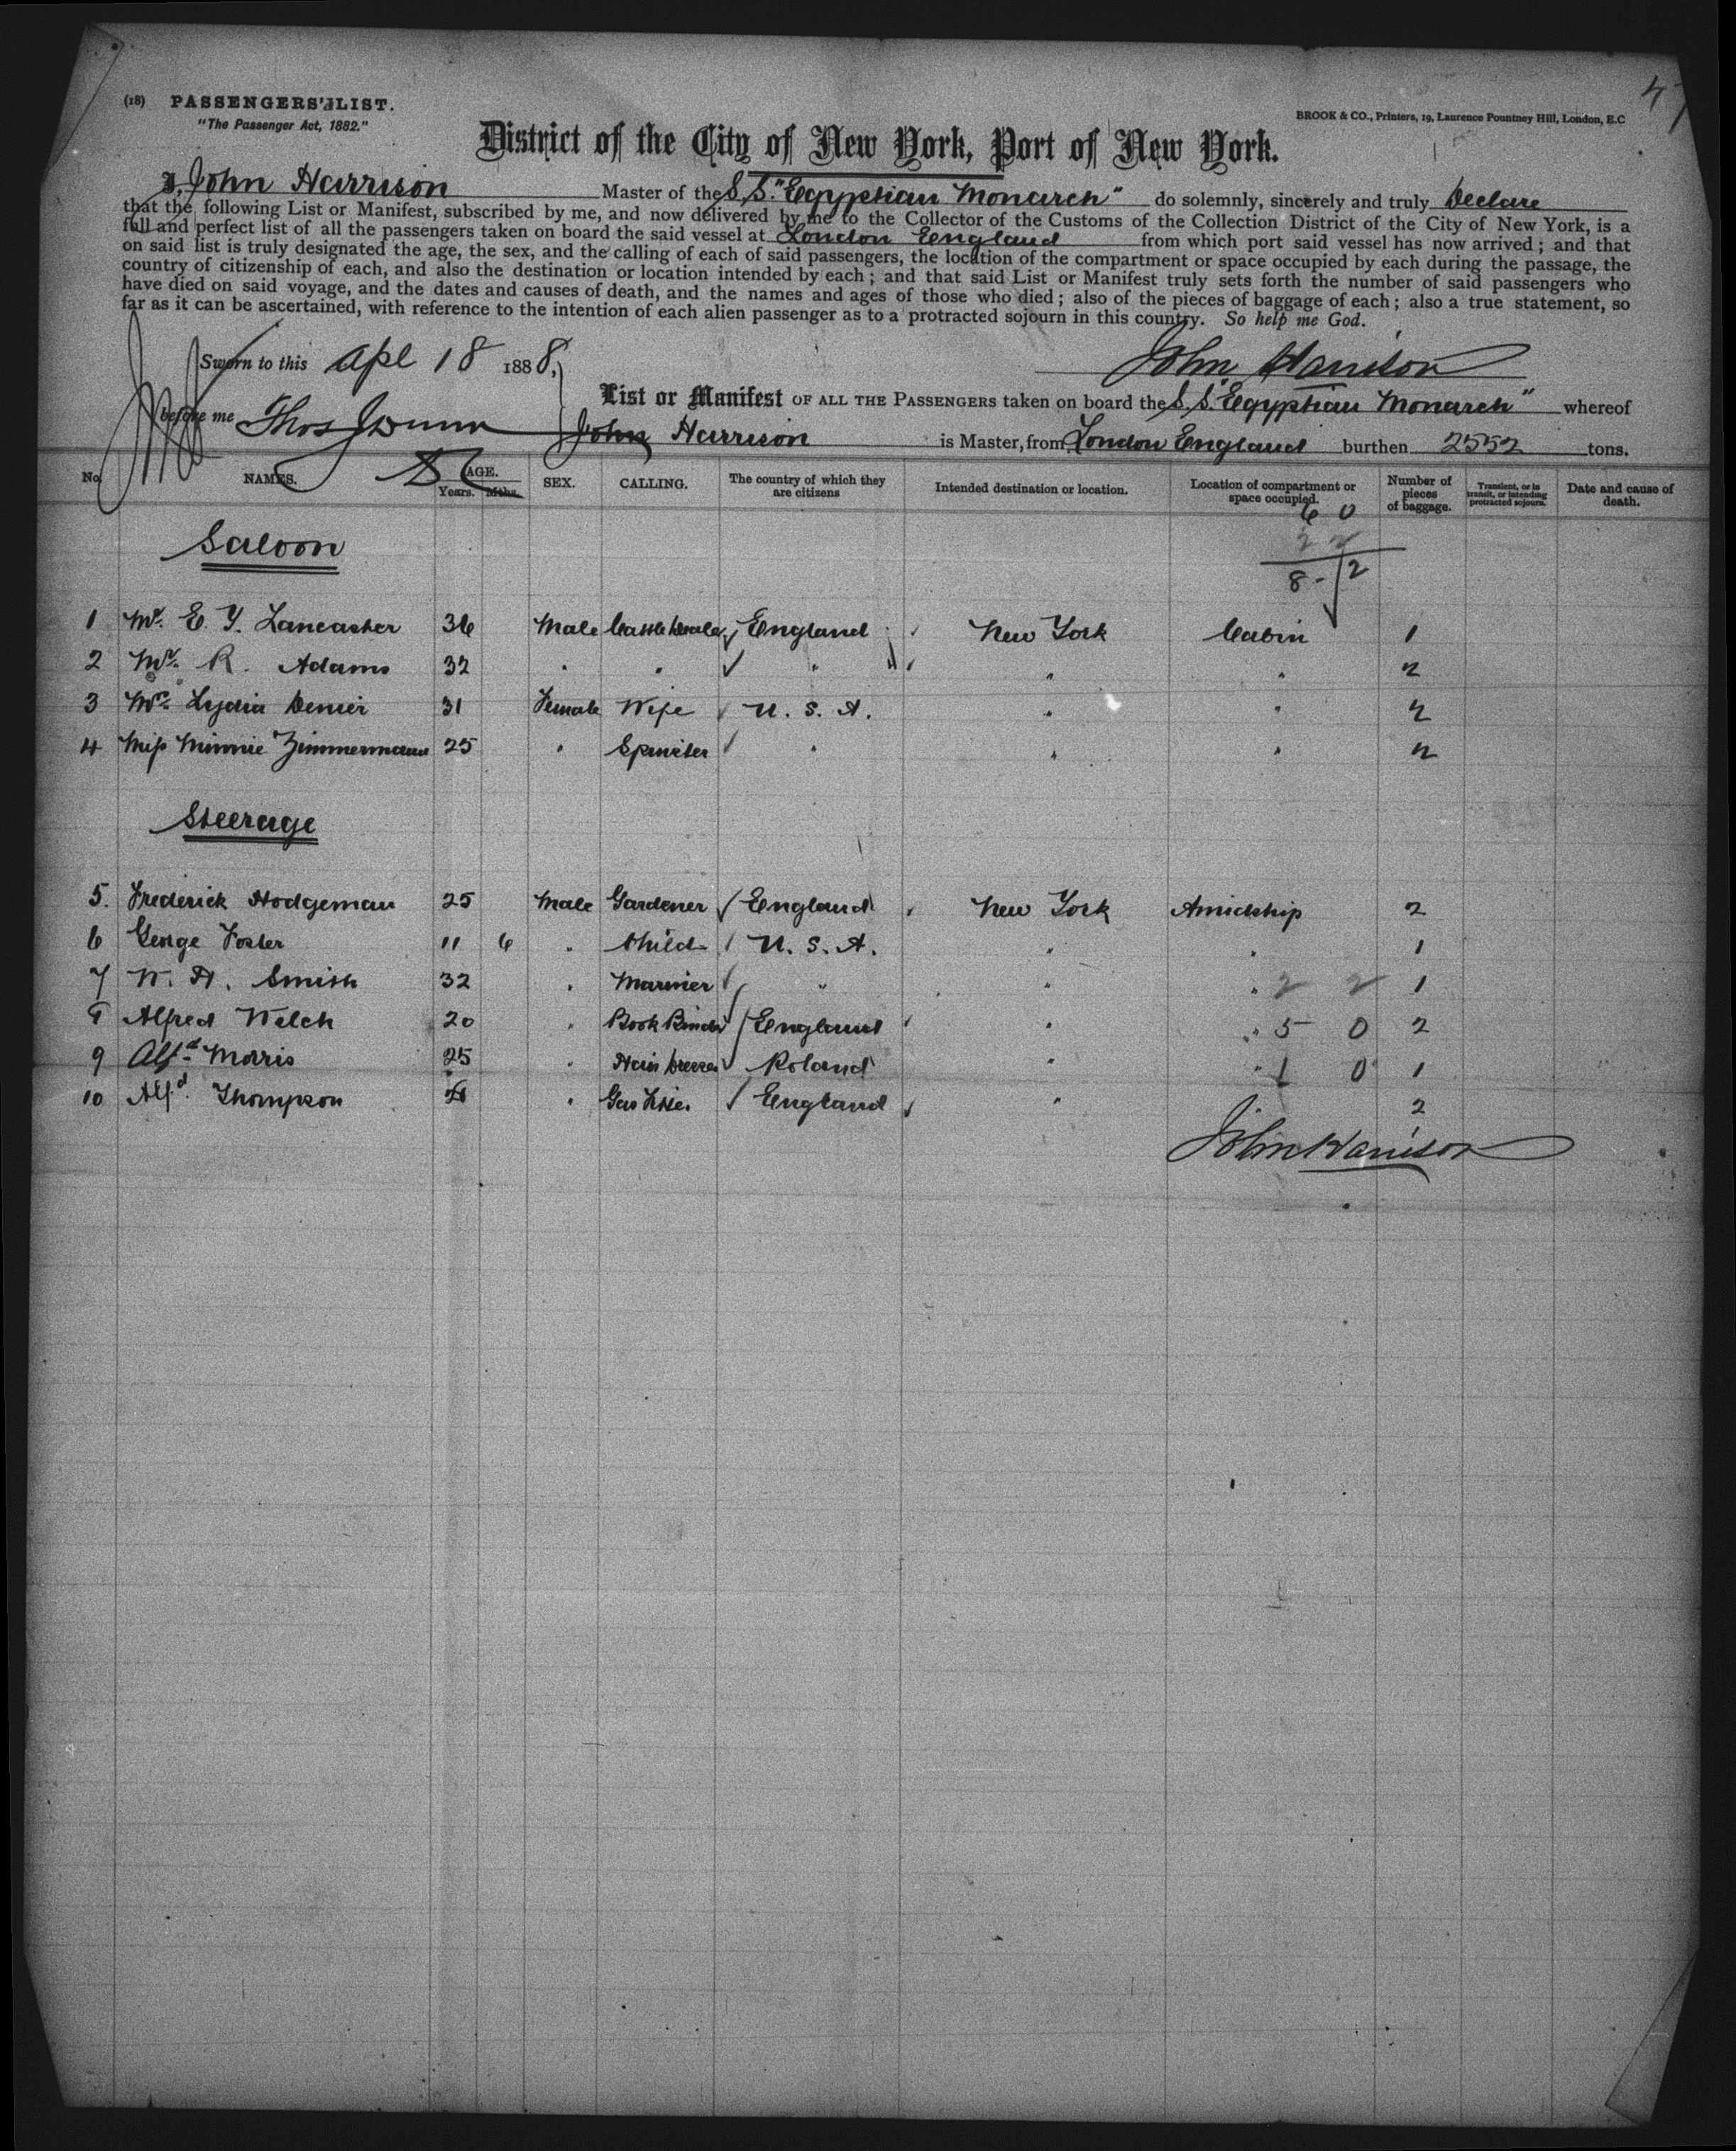 47
(18) PASSENGERS' LIST.
"The Passenger Act, 1882."
BROOK & CO., Printers, 19, Laurence Pountney Hill, London, E.C
District of the City of New York, Port of New York.
I, John Harrison Master of the S.S. "Egyptian Monarch" do solemnly, sincerely and truly Declare
that the following List or Manifest, subscribed by me, and now delivered by me to the Collector of the Customs of the Collection District of the City of New York, is a
full and perfect list of all the passengers taken on board the said vessel at London England from which port said vessel has now arrived; and that
on said list is truly designated the age, the sex, and the calling of each of said passengers, the location of the compartment or space occupied by each during the passage, the
country of citizenship of each, and also the destination or location intended by each; and that said List or Manifest truly sets forth the number of said passengers who
have died on said voyage, and the dates and causes of death, and the names and ages of those who died; also of the pieces of baggage of each; also a true statement, so
far as it can be ascertained, with reference to the intention of each alien passenger as to a protracted sojourn in this country. So help me God.
Sworn to this Apl 18 1888,
John Harrison
before me Thos J Dunn
List or Manifest OF ALL THE PASSENGERS taken on board the S.S. "Egyptian Monarch" whereof
John Harrison is Master, from London England burthen 2552 tons.
No. NAMES. AGE. Years. Mths. SEX. CALLING. The country of which they are citizens Intended destination or location. Location of compartment or space occupied. Number of pieces of baggage. Transient, or in transit, or intending protracted sojourn. Date and cause of death.
6 0
2 2
8 - 2
Saloon
1 Mr. E. Y. Lancaster 36 Male Cattle Dealer England New York Cabin 1
2 Mr. R. Adams 32 " " " " " 2
3 Mrs. Lydia Denier 31 Female Wife U. S. A. " " 2
4 Miss Minnie Zimmermann 25 " Spinster " " " 2
Steerage
5. Frederick Hodgeman 25 Male Gardener England New York Amidship 2
6 George Foster 11 6 " Child U. S. A. " " 1
7 W. H. Smith 32 " Mariner " " " 2 2 1
8 Alfred Welch 20 " Book Binder England " " 5 0 2
9 Alfd. Morris 25 " Hair Dresser Poland " " 1 0 1
10 Alfd. Thompson " Gas Fitter England " 2
John Harrison